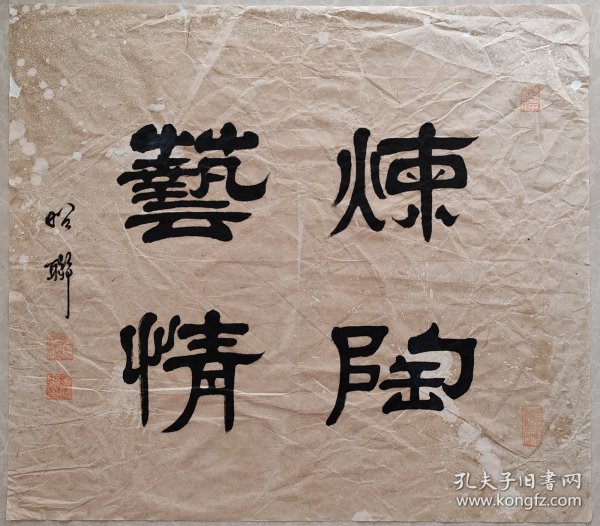 煉陶
藝情
昭聯
孔夫子旧书网
www.kongfz.com